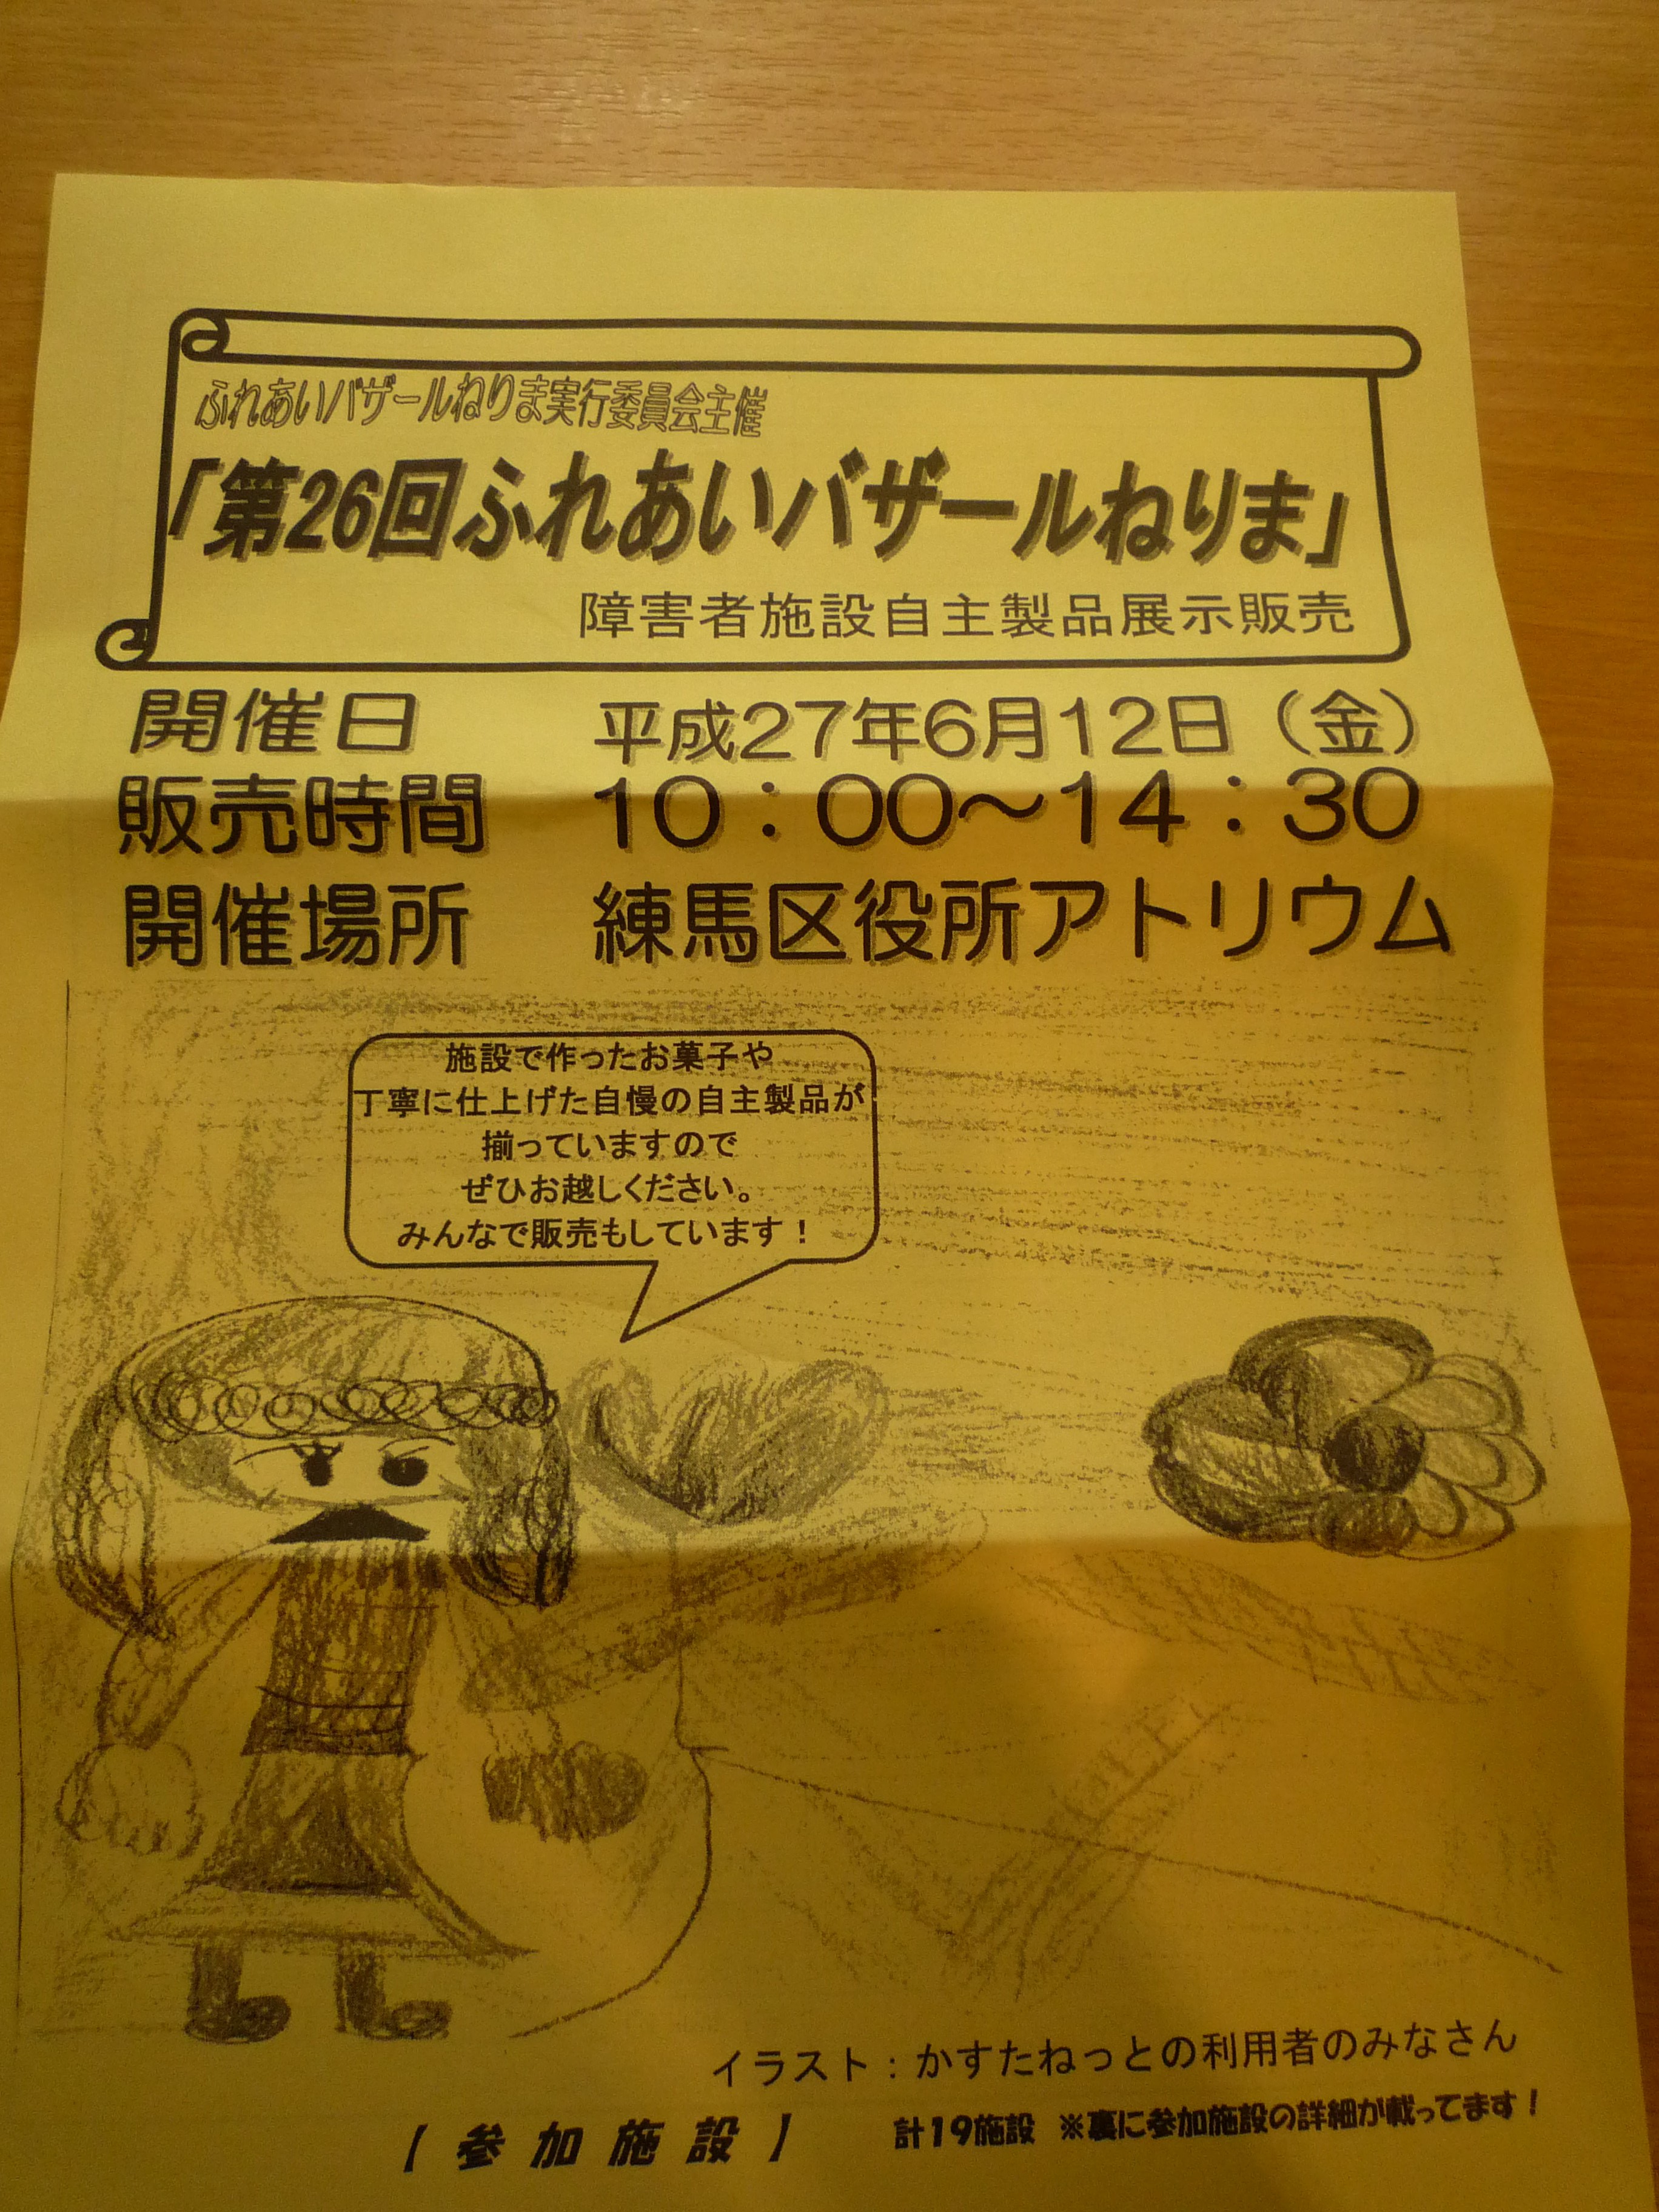 ふれあいバザールねりま実行委員会主催
「第26回ふれあいバザールねりま」
障害者施設自主製品展示販売
開催日 平成27年6月12日（金）
販売時間 10：00～14：30
開催場所 練馬区役所アトリウム
施設で作ったお菓子や
丁寧に仕上げた自慢の自主製品が
揃っていますので
ぜひお越しください。
みんなで販売もしています！
イラスト：かすたねっとの利用者のみなさん
【参加施設】 計19施設 ※裏に参加施設の詳細が載ってます！